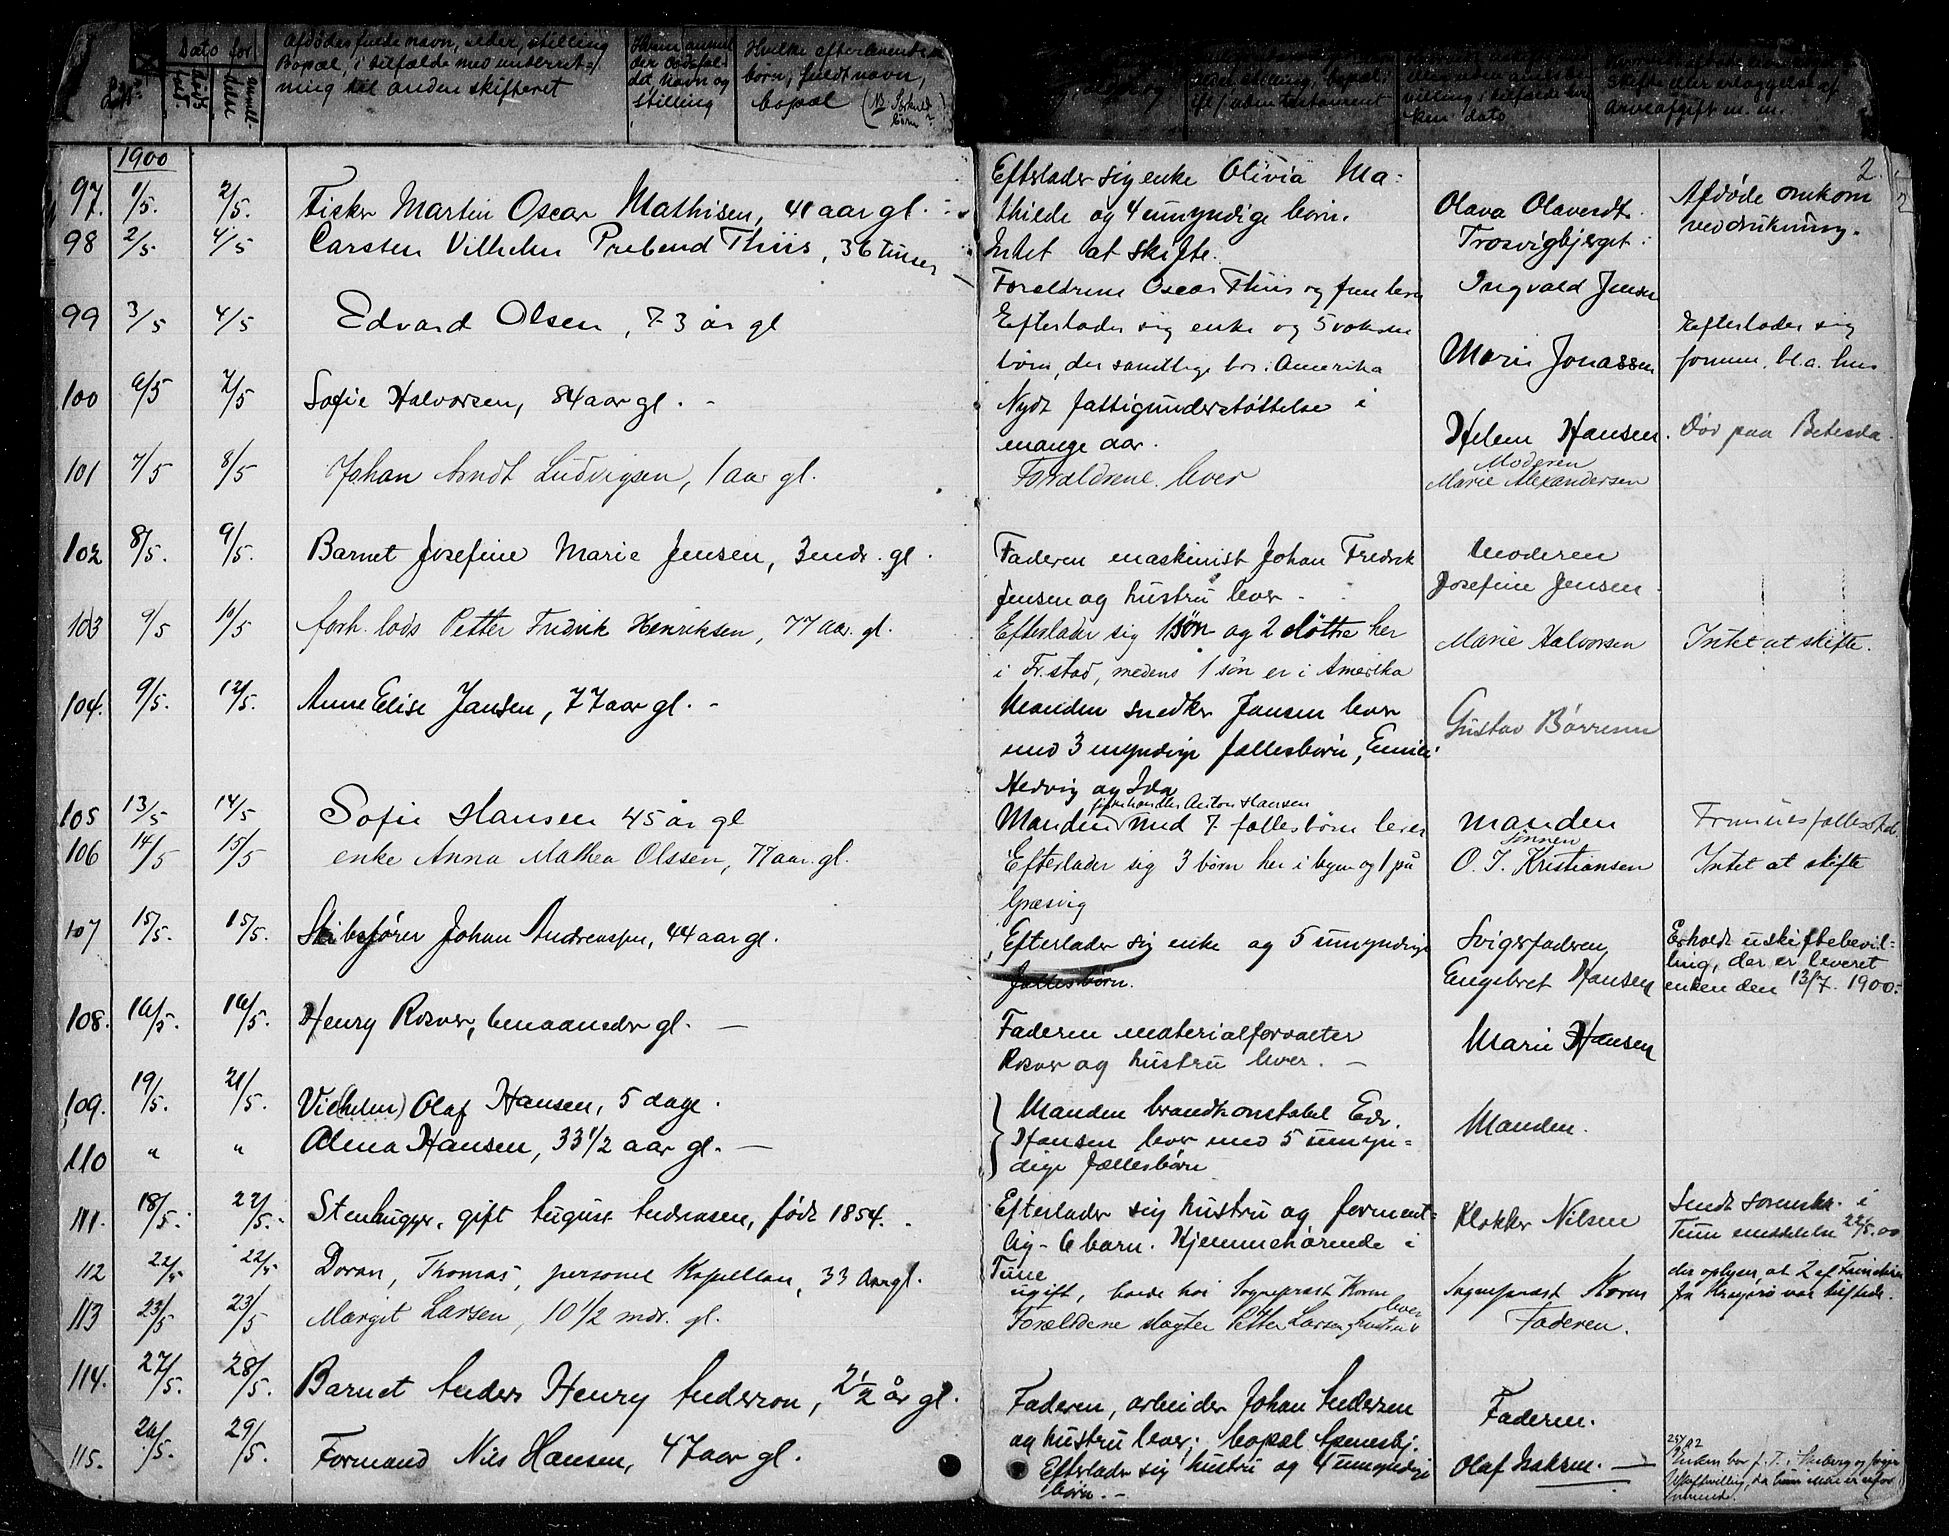 Dato for
Afdødes fulde navn, alder, stilling
Bopæl, i tilfælde med underret-
ning til anden skifteret
Hvem anmel
der dødsfal-
det, navn og
stilling
Hvilke efterlevende
børn, fuldt navn,
bopæl
1900
2.
97. 1/5. 2/5. Fisker Martin Oscar Mathisen, 41 aar gl.
Efterlader sig enke Olivia Ma-
thilde og 4 umyndige børn.
Intet at skifte.
Olava Olavesdt.
Trosvigbjerget
Afdøde omkom
ved drukning.
98 2/5. 4/5 Carsten Vilhelm Prebend Thiis, 36 timer
Forældrene Oscar Thiis og fru lever
Ingvald Jensen
99 3/5 4/5 Edvard Olsen, 73 år gl
Efterlader sig enke og 5 voksne
børn, der samtlige bor i Amerika
Marie Jonassen
Efterlader sig
formue, bl.a. hus
100 6/5 7/5 Sofie Halvorsen, 84 aar gl. -
Nydt fattigunderstøttelse i
mange aar.
Helene Hansen.
Død paa Betesda.
101 7/5 8/5 Johan Arndt Ludvigsen, 1 aar gl.
Forældrene lever
Moderen
Marie Alexandersen
102 8/5. 9/5. Barnet Josefine Marie Jensen, 3 mdr. gl.
Faderen maskinist Johan Fredrik
Jensen og hustru lever.
Moderen
Josefine Jensen
103 9/5 10/5 forh. lods Petter Fredrik Henriksen, 77 aar. gl.
Efterlader sig 1 søn og 2 døttre her
i Fr.stad, medens 1 søn er i Amerika
Marie Halvorsen
Intet at skifte.
104. 9/5. 12/5. Anne Elise Jansen, 77 aar gl. -
Manden snedker Jansen lever
med 3 myndige fællesbørn, Emilie
Hedvig og Ida
Gustav Børresen
105 13/5 14/5 Sofie Hansen 45 år gl
Anton Hansen
Manden med 7 fællesbørn lever
Manden
106 14/5 15/5 enke Anna Mathea Olssen, 77 aar. gl.
Efterlader sig 3 børn her i byen og 1 på
Græsvig
Sønnen
O. J. Kristiansen
Intet at skifte
107 15/5. 15/5. Skibsfører Johan Andreassen, 44 aar gl.
Efterlader sig enke og 5 umyndige
fællesbørn.
Svigerfaderen,
Engebret Hansen
Erholdt uskiftebevil-
ling, der er leveret
enken den 13/7. 1900.
108. 16/5. 16/5. Henry Rosver, 6 maaneder gl. —
Faderen materialforvalter
Rosver og hustru lever. —
Marie Hansen
109. 19/5. 21/5. Vilhelm Olaf Hansen, 5 dage.
110 " " Alma Hansen, 33 1/2 aar gl. —
Manden brandkonstabel Edv.
Hansen lever med 5 umyn-
dige fællesbørn
Manden.
111. 18/5. 22/5. Stenhugger, gift August Andreasen, født 1854.
Efterlader sig hustru og forment-
lig 6 barn. Hjemmehørende i
Tune
Klokker Nilsen
Sendt sorenskr. i
Tune meddelelse 22/5.00
112 22/5 22/5 Doran, Thomas, personel Kapellan, 33 Aar gl.
ugift, boede hos Sogneprest Horn
Sogneprest Horn
113 23/5 23/5 Margit Larsen, 10 1/2 mdr. gl.
Forældrene slagter Petter Larsen hustru
lever
Faderen.
114. 27/5. 28/5. Barnet Anders Henry Anderson, 2 1/2 år gl.
Faderen, arbeider Johan Andersen
og hustru lever; bopæl
Faderen.
115. 26/5. 29/5. Formand Nils Hansen, 47 aar gl.
Efterlader sig hustru og 4 umyndige
børn. -
Olaf Isaksen. —